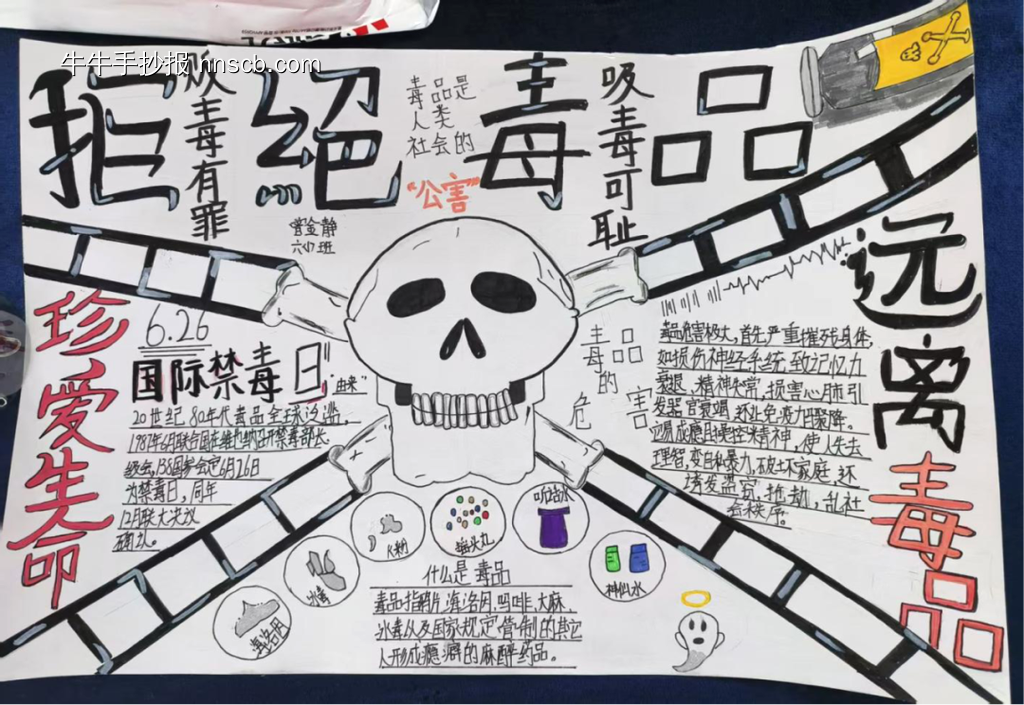 牛牛手抄报 nnscb.com
拒绝毒品
吸毒有罪
毒品是
人类
社会的
“公害”
吸毒可耻
远离毒品
珍爱生命
6.26
国际禁毒日
“由来”
20世纪80年代毒品全球泛滥,
1987年6月联合国在维也纳召开禁毒部长
级会,138国家会定6月26日
为禁毒日,同年
12月联大决议
确认。
毒品的
危害
毒品危害极大,首先严重摧残身体,
如损伤神经系统,致记忆力
衰退、精神失常,损害心肺引
发器官衰竭,
理智,变自私暴力,破坏家庭,还
诱发盗窃、抢劫,乱社
会秩序。
海洛因
冰毒
K粉
摇头丸
听话水
神仙水
什么是毒品
毒品指鸦片、海洛因、吗啡、大麻、
冰毒以及国家规定管制的其它
人形成瘾癖的麻醉药品。